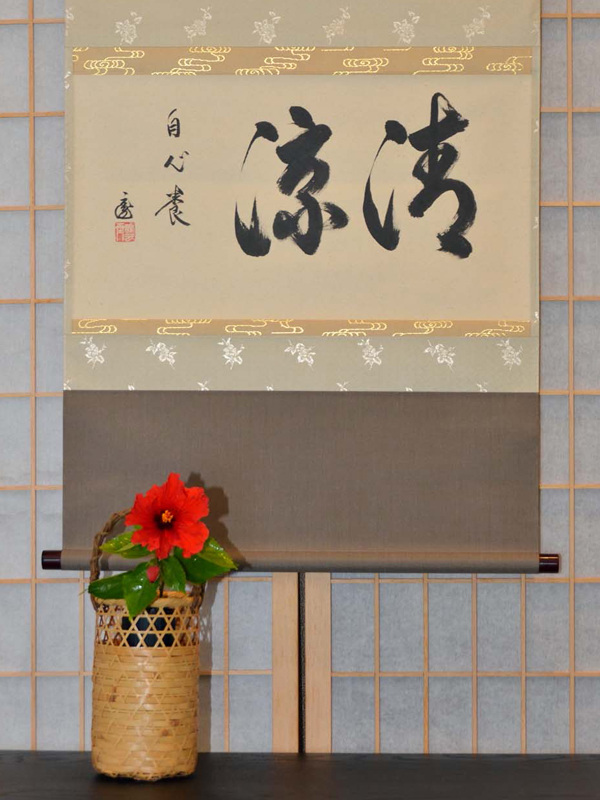 清涼
自心